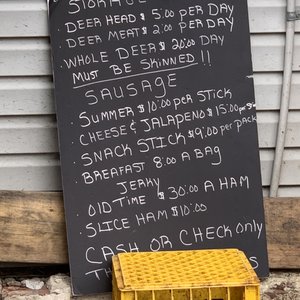 STORAGE
DEER HEAD $5.00 PER DAY
DEER MEAT $2.00 PER DAY
WHOLE DEER $20.00 DAY
MUST BE SKINNED !!
SAUSAGE
. SUMMER $10.00 PER STICK
. CHEESE & JALAPENO $15.00
. SNACK STICK $9.00 per pack
. BREAFAST 8.00 A BAG
JERKY
. OLD TIME $30.00 A HAM
. SLICE HAM $10.00
CASH OR CHECK only